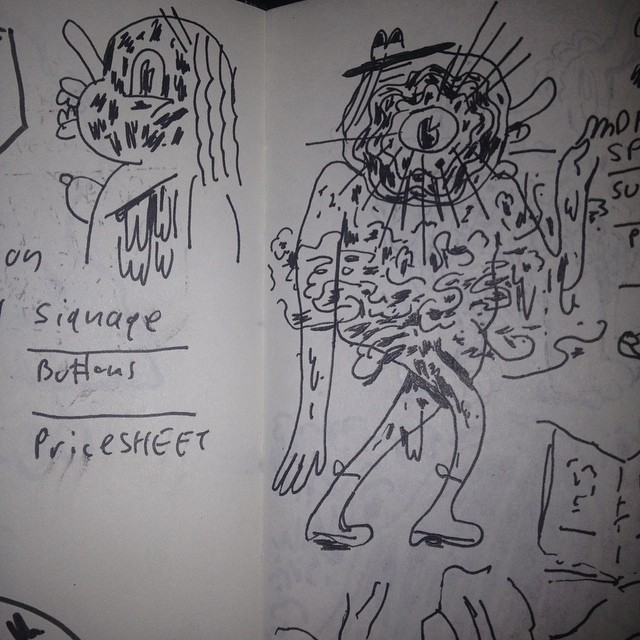 on
Signage
Buttons
PriceSHEET
MON
SP
SU